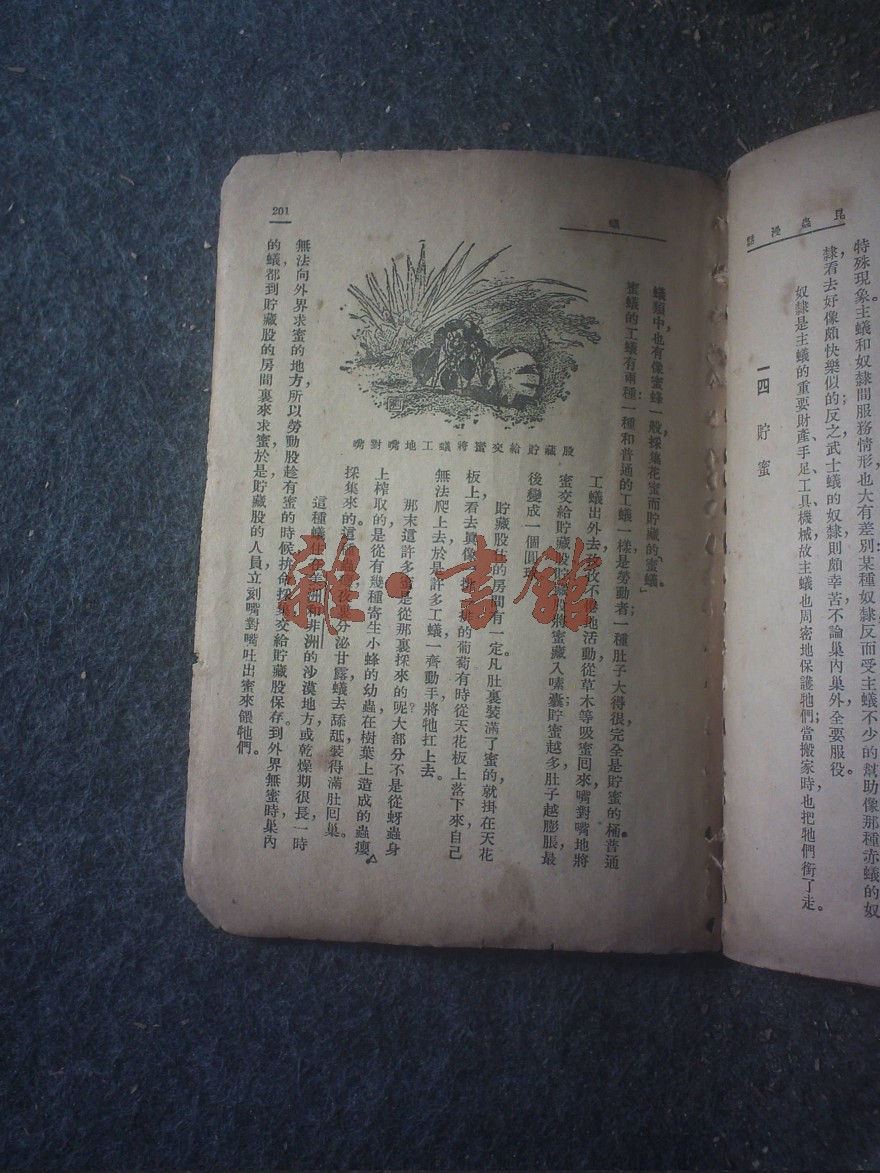 昆蟲漫話
特殊現象主蟻和奴隸間服務情形也大有差別某種奴隸反而受主蟻不少的幫助像那種赤蟻的奴
隸看去好像頗快樂似的反之武士蟻的奴隸則頗幸苦不論巢內巢外全要服役。
奴隸是主蟻的重要財產、手足、工具、機械故主蟻也周密地保護牠們當搬家時也把牠們銜了走。
一四 貯蜜
蟻
蟻類中也有像蜜蜂一般採集花蜜而貯藏的「蜜蟻。」
蜜蟻的工蟻有兩種一種和普通的工蟻一樣是勞動者一種肚子大得很完全是貯蜜的桶普通
工蟻出外去孜孜不倦地活動從草木等吸蜜回來嘴對嘴地將
蜜交給貯藏股貯藏股將蜜藏入嗉囊貯蜜越多肚子越膨脹最
後變成一個圓球
貯藏股住的房間有一定凡肚裏裝滿了蜜的就掛在天花
板上看去眞像一排一排的葡萄有時從天花板上落下來自己
無法爬上去於是許多工蟻一齊動手將牠扛上去。
那末這許多蜜是從那裏採來的呢?大部分不是從蚜蟲身
上榨取的是從有幾種寄生小蜂的幼蟲在樹葉上造成的蟲癭
採集來的。這夜裏分泌甘露蟻去舔舐裝得滿肚囘巢。
這種蟻住在美洲和非洲的沙漠地方或乾燥期很長一時
無法向外界求蜜的地方所以勞動股趁有蜜的時候拚命採集交給貯藏股保存。到外界無蜜時巢內
的蟻都到貯藏股的房間裏來求蜜於是貯藏股的人員立刻嘴對嘴吐出蜜來餵牠們。
股藏貯給交蜜將蟻工地嘴對嘴
201
雜·書館